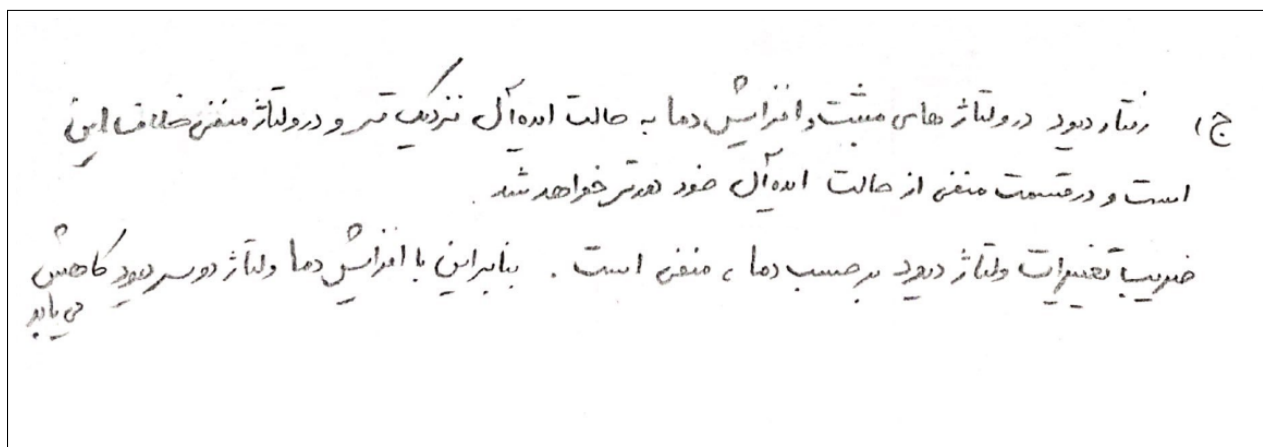 ج) رفتار دیود در ولتاژ های مثبت و افزایش دما به حالت ایده‌آل نزدیک تر و در ولتاژ منفی خلاف این
است و در قسمت منفی از حالت ایده‌آل خود دورتر خواهد شد.
ضریب تغییرات ولتاژ دیود برحسب دما، منفی است. بنابراین با افزایش دما ولتاژ دو سر دیود کاهش
می‌یابد